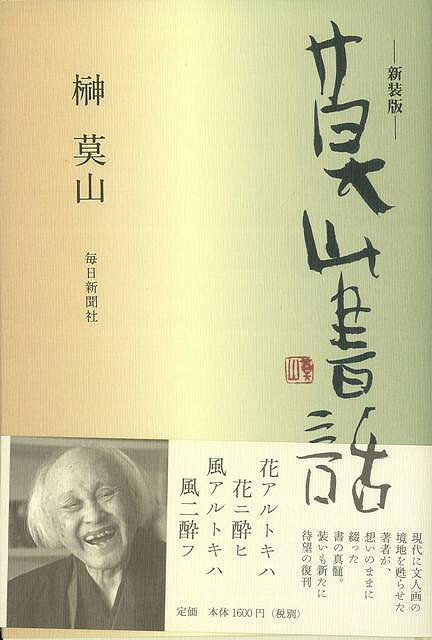 ―新装版―
莫山書話
莫山
榊 莫山
毎日新聞社
現代に文人画の
境地を甦らせた
著者が、
想いのままに
綴った
書の真髄。
装いも新たに
待望の復刊
花アルトキハ
花ニ酔ヒ
風アルトキハ
風ニ酔フ
定価 本体1600円(税別)